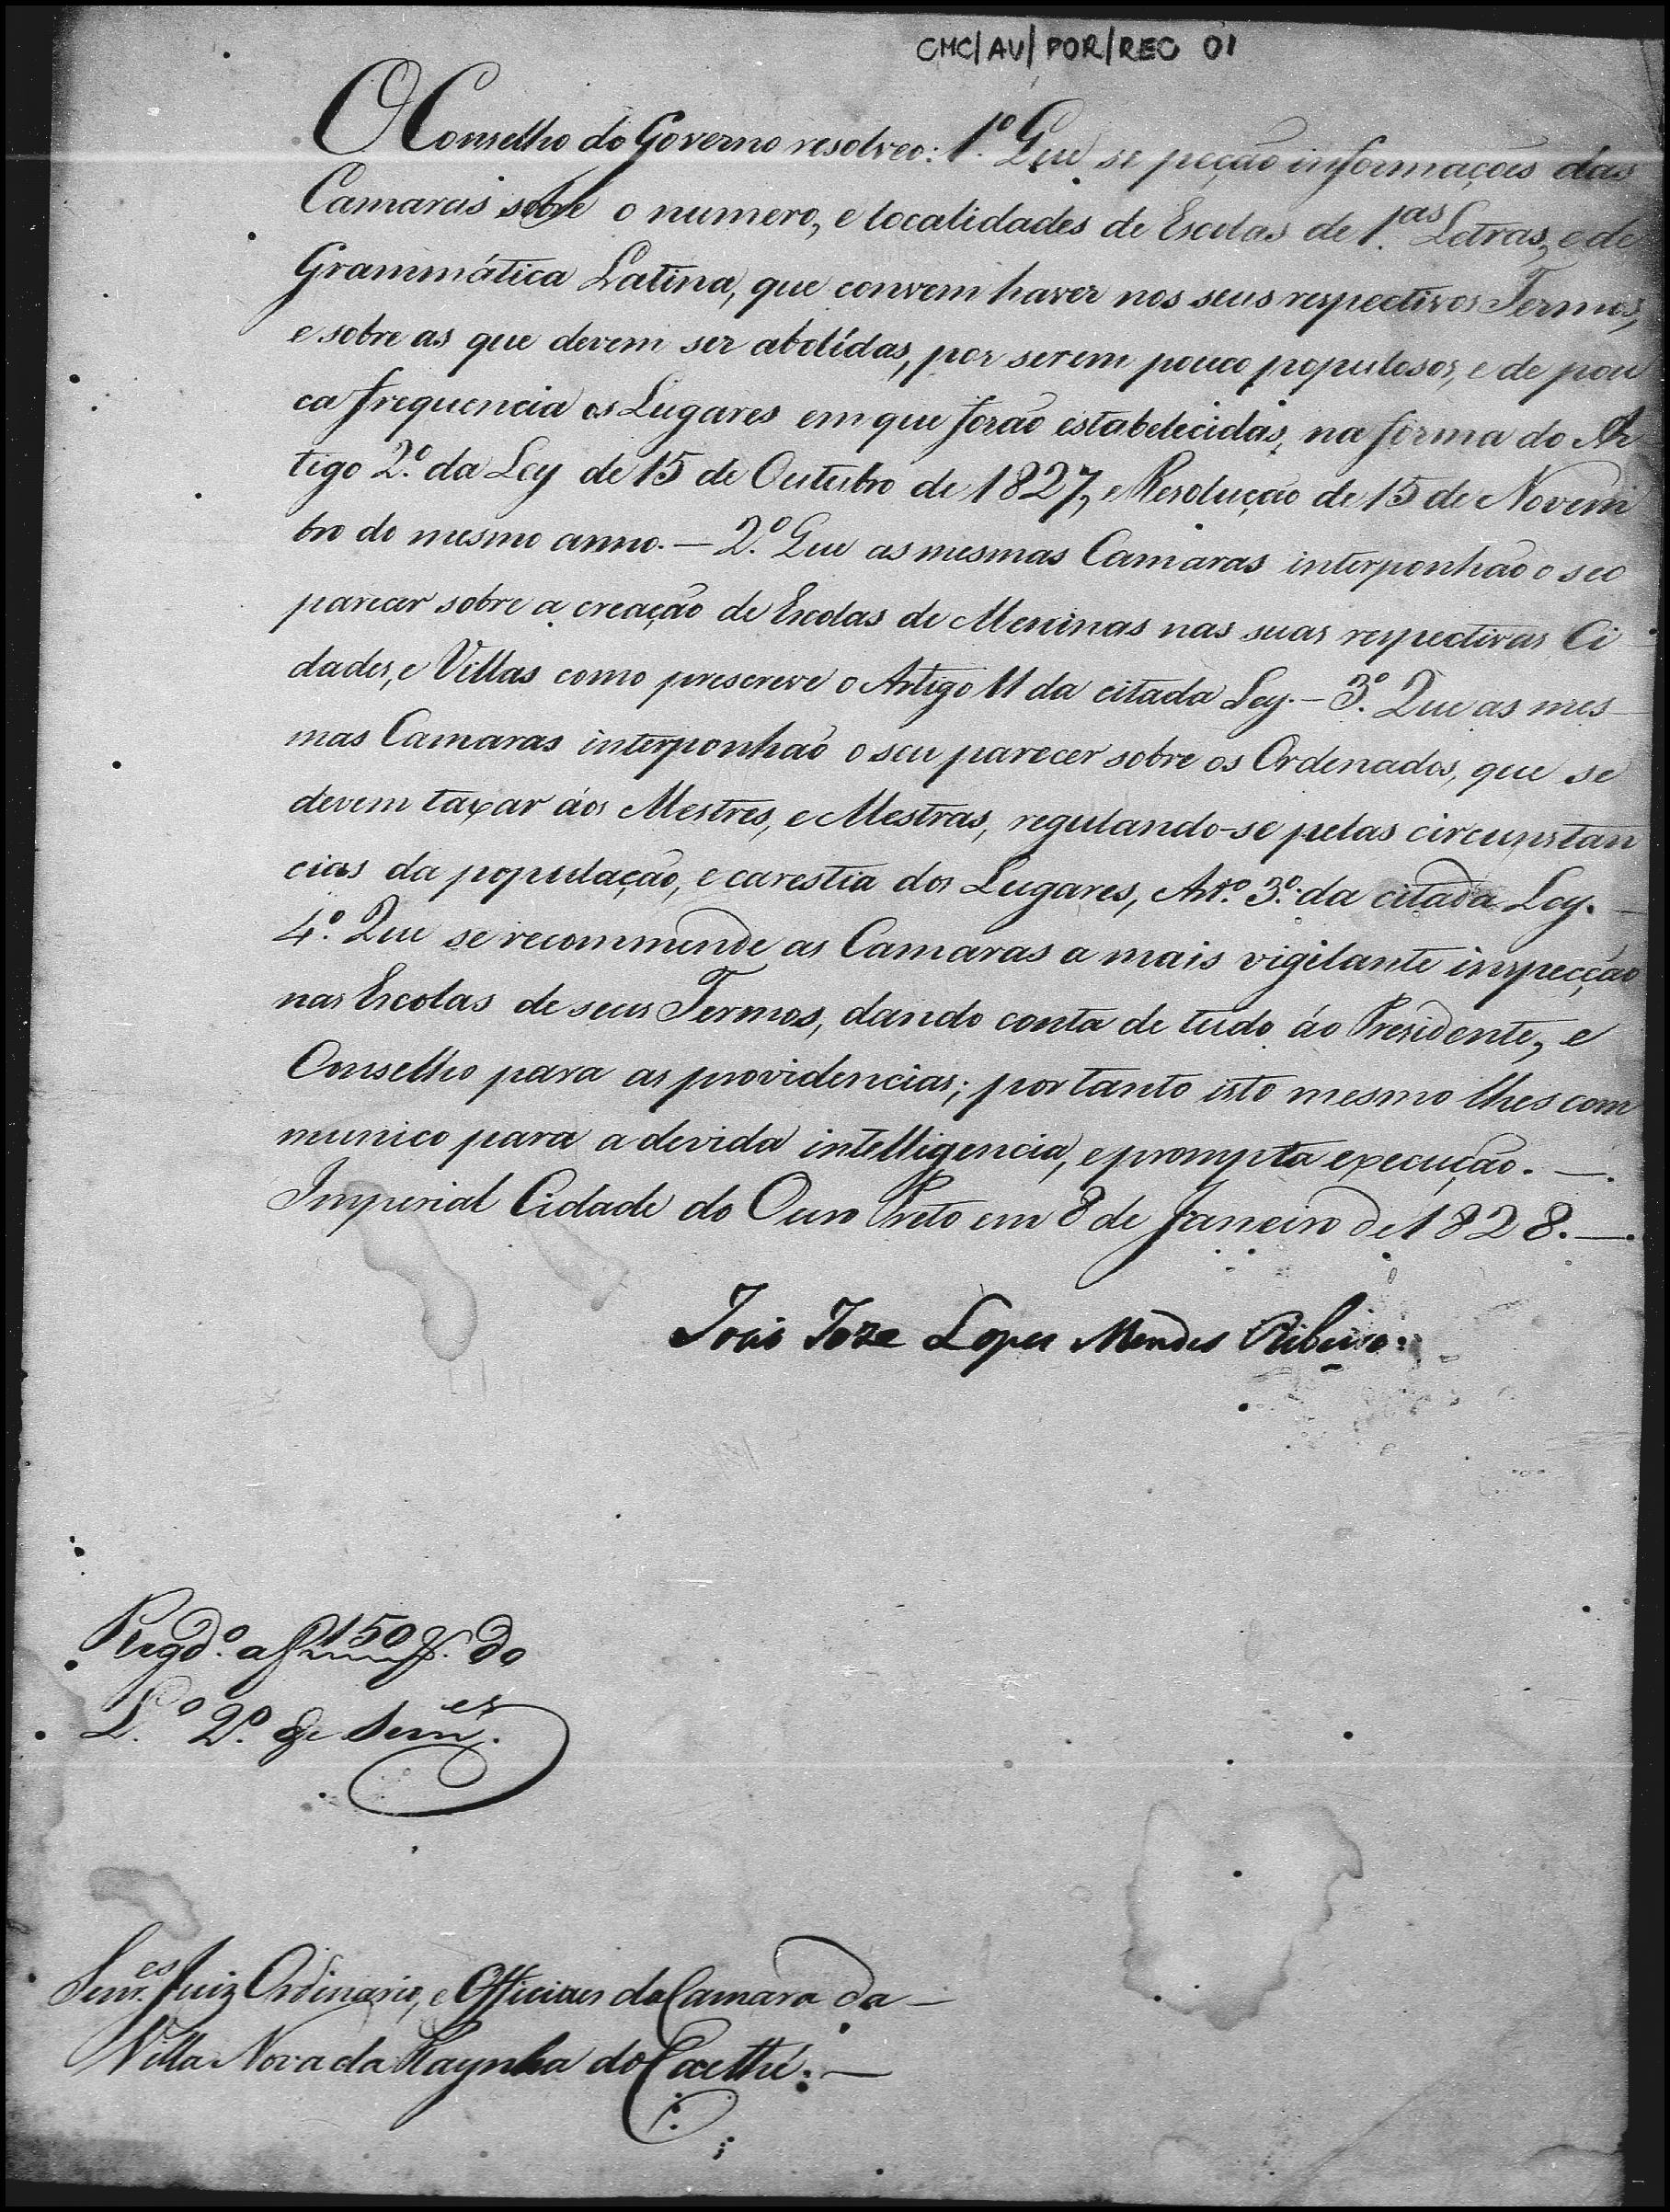 CMC/AV/POR/REC 01
O Conselho do Governo resolveo: 1.º Que se peção informações das
Camaras sobre o numero, e localidades de Escolas de 1.as Letras, e de
Grammática Latina, que convem haver nos seus respectivos Termos,
e sobre as que devem ser abolídas, por serem pouco populosos, e de pou
ca frequencia os Lugares em que forão estabelecidas, na fórma do Ar
tigo 2.º da Ley de 15 de Outubro de 1827, e Resolução de 15 de Novem
bro do mesmo anno. — 2.º Que as mesmas Camaras interponhão o seo
parecer sobre a creação de Escolas de Meninas nas suas respectivas Ci
dades, e Villas como prescreve o Artigo 11 da citada Ley. — 3.º Que as mes
mas Camaras interponhão o seu parecer sobre os Ordenados, que se
devem taxar áos Mestres, e Mestras, regulando-se pelas circunstan
cias da população, e carestia dos Lugares, Art.º 3.º da citada Ley. —
4.º Que se recommende as Camaras a mais vigilante inspecção
nas Escolas de seus Termos, dando conta de tudo áo Presidente, e
Conselho para as providencias; por tanto isto mesmo lhes com
munico para a devida intelligencia, e prompta execução. —
Imperial Cidade do Ouro Preto em 8 de Janeiro de 1828. —
João Joze Lopes Mendes Ribeiro
Regd.º a f 150 do
L.º 2.º de
Senr.es Juiz Ordinario, e Officiaes da Camara da —
Villa Nova da Raynha do Caethé. —